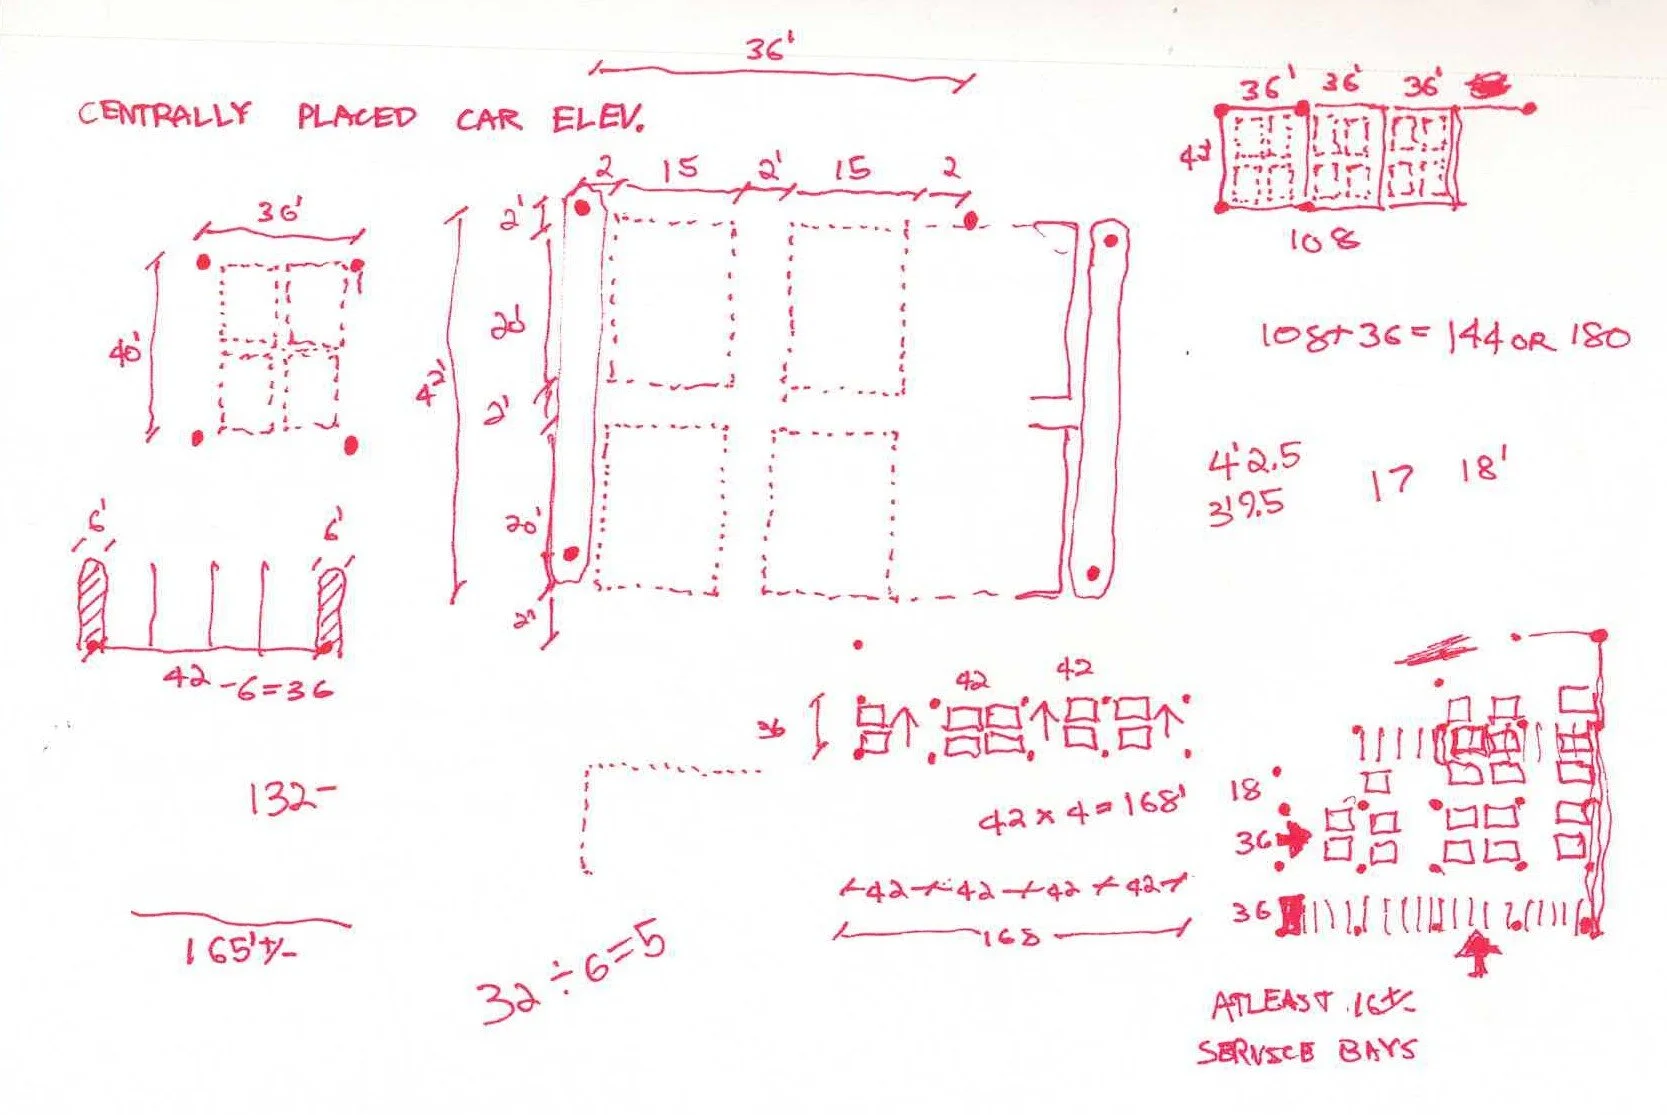 36'
CENTRALLY PLACED CAR ELEV.
2 15 2' 15 2
36'
40'
2'
20'
2'
20'
2"
42'
6' 6'
42-6=36
132-
165'+/-
32÷6=5
36' 36' 36'
42'
108
108+36=144 OR 180
4'2.5
3'9.5
17 18'
42 42
36
42 x 4 = 168'
42 42 42 42
168
18
36
36
ATLEAST 16+/-
SERVICE BAYS